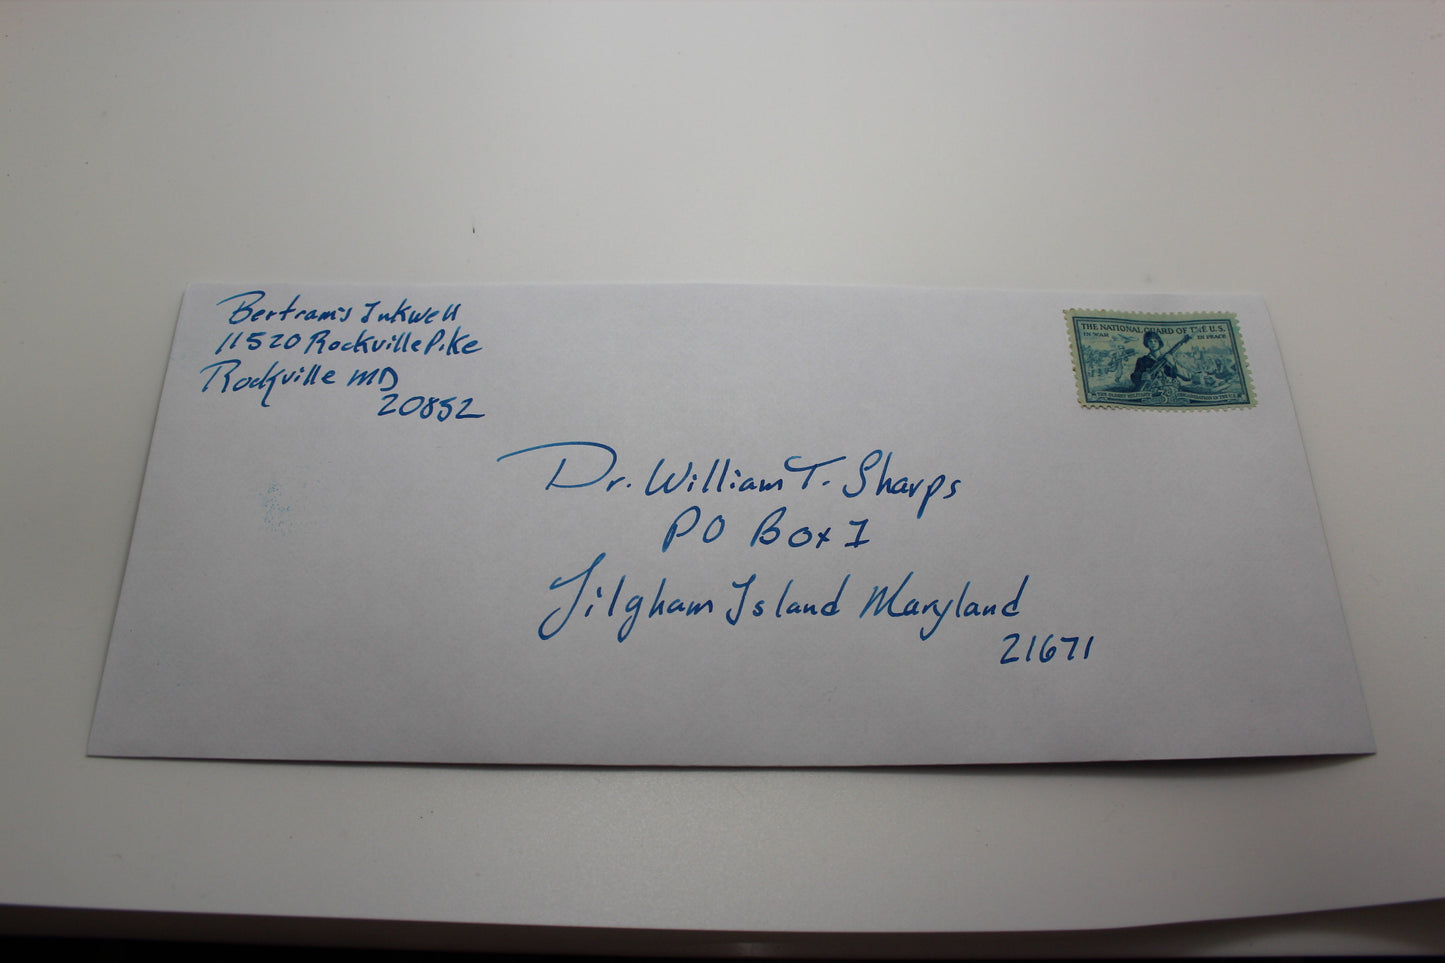 Bertram's Inkwell
11520 Rockville Pike
Rockville MD
20852
THE NATIONAL GUARD OF THE U.S.
IN WAR
IN PEACE
THE OLDEST MILITARY
ORGANIZATION IN THE U.S.
3¢
Dr. William T. Sharps
PO Box I
Tilgham Island Maryland
21671